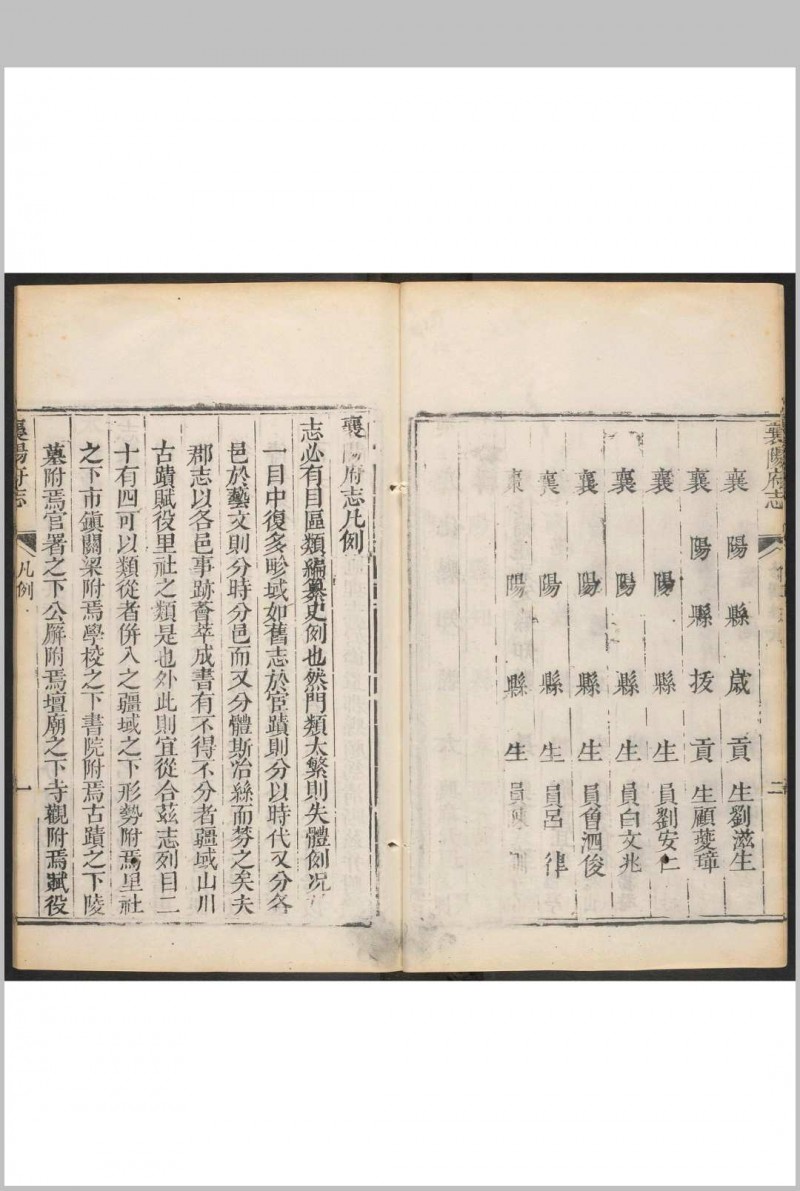 襄陽府志
二
襄陽縣歲貢生劉滋生
襄陽縣拔貢生顧夔璋
襄陽縣生員劉安仁
襄陽縣生員魯泗俊
襄陽縣生員白文兆
襄陽縣生員呂律
陽縣生員
襄陽府志凡例
志必有目區類編纂史例也然門類太繁則失體例况
一目中復多畛域如舊志於宦蹟則分以時代又分各
邑於藝文則分時分邑而又分體斯治絲而棼之矣夫
郡志以各邑事跡薈萃成書有不得不分者疆域山川
古蹟賦役里社之類是也外此則宜從合茲志列目二
十有四可以類從者併入之疆域之下形勢附焉里社
之下市鎮關梁附焉學校之下書院附焉古蹟之下陵
墓附焉官署之下公廨附焉壇廟之下寺觀附焉賦役
襄陽府志
凡例
一